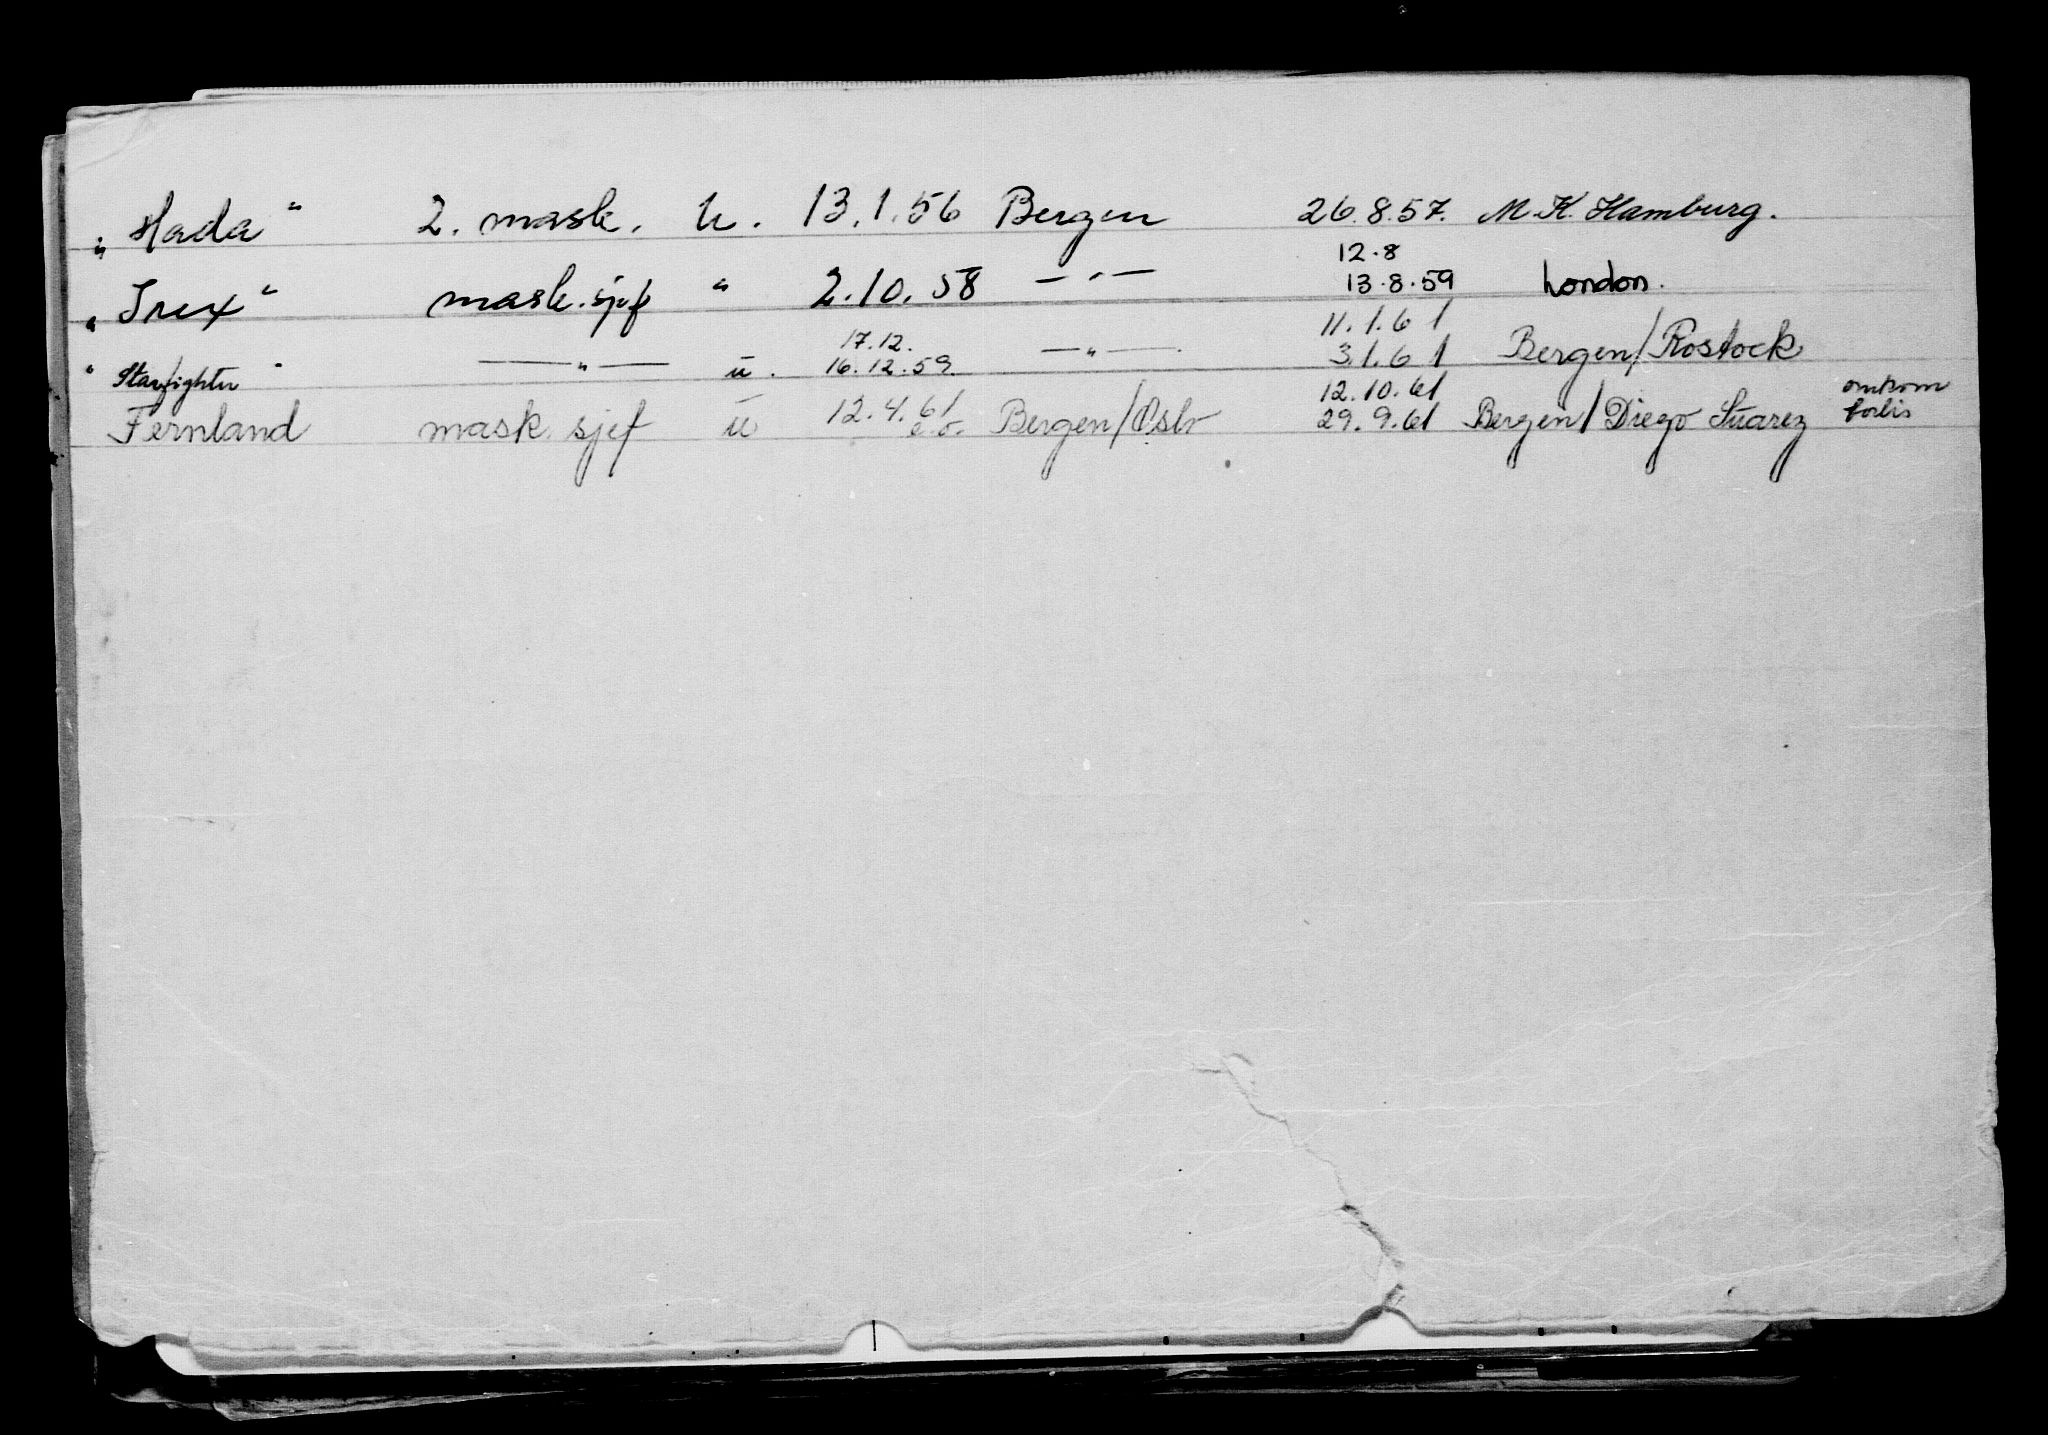 „Hada" 2. mask. U. 13.1.56 Bergen 26.8.57. M.K. Hamburg.
12.8
„Irex" mask.sjef " 2.10.58 —"— 13.8.59 London.
17.12. 11.1.61
"Starfighter" —"— u. 16.12.59. —"— 3.1.61 Bergen/Rostock
12.10.61 omkom
Fernland mask sjef u 12.4.61 Bergen/Oslo 29.9.61 Bergen/Diego Suarez forlis
e.o.